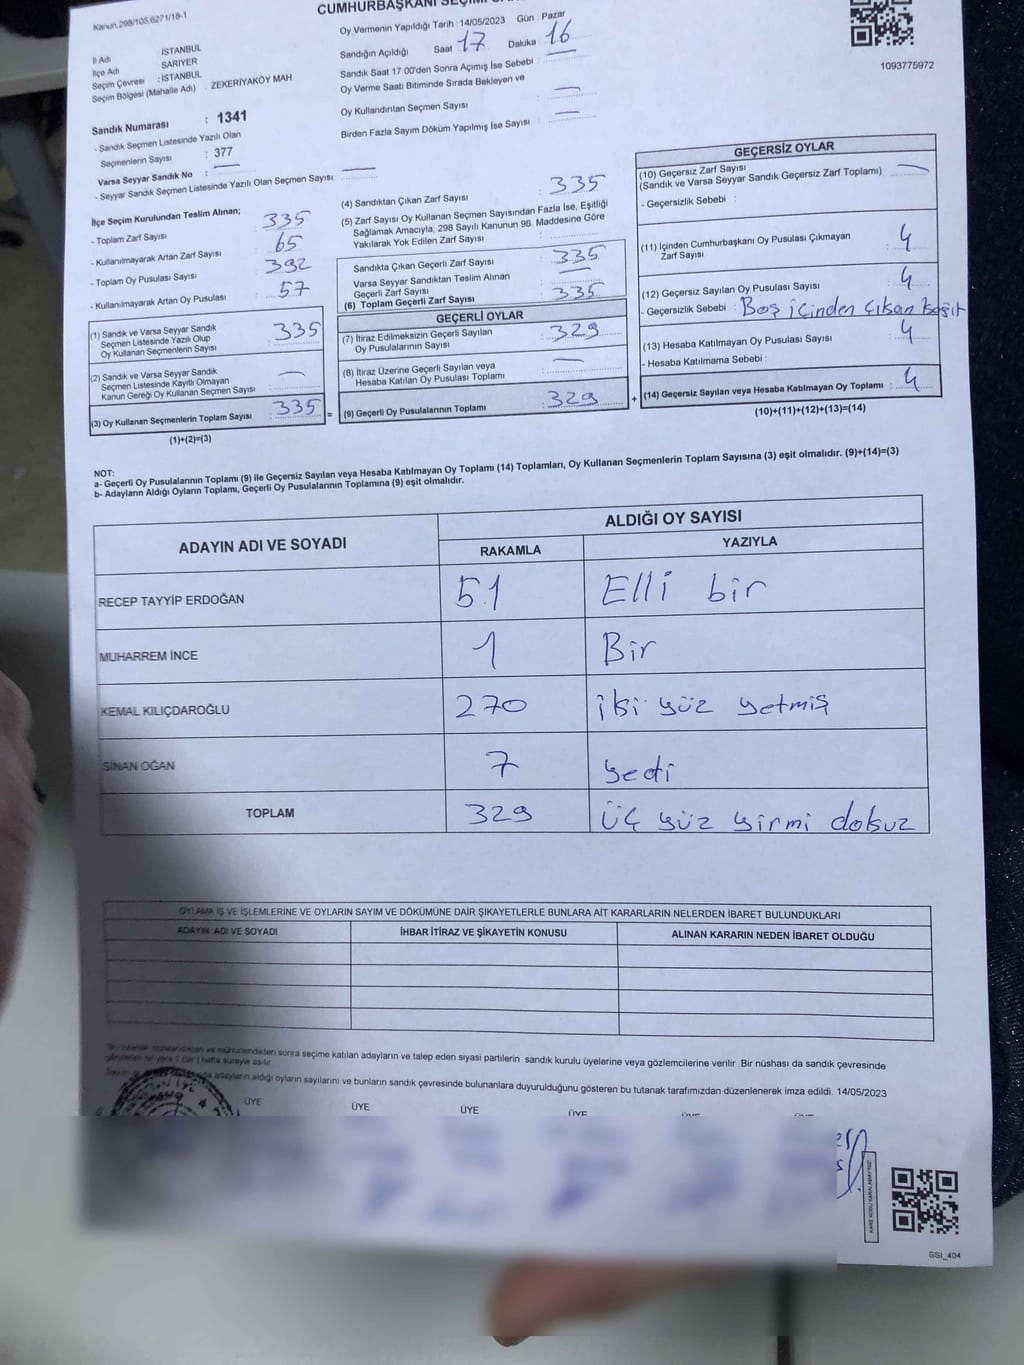 Kanun 298/105,6271/18-1
CUMHURBAŞKANI
Oy Vermenin Yapıldığı Tarih : 14/05/2023 Gün : Pazar
Sandığın Açıldığı Saat 17 Dakika 16
Sandık Saat 17:00'den Sonra Açımış İse Sebebi :
Oy Verme Saati Bitiminde Sırada Bekleyen ve
Oy Kullandırılan Seçmen Sayısı : —
Birden Fazla Sayım Döküm Yapılmış İse Sayısı : —
1093775972
İl Adı : İSTANBUL
İlçe Adı : SARIYER
Seçim Çevresi : İSTANBUL
Seçim Bölgesi (Mahalle Adı) : ZEKERİYAKÖY MAH
Sandık Numarası : 1341
- Sandık Seçmen Listesinde Yazılı Olan
Seçmenlerin Sayısı : 377
Varsa Seyyar Sandık No : —
- Seyyar Sandık Seçmen Listesinde Yazılı Olan Seçmen Sayısı: —
İlçe Seçim Kurulundan Teslim Alınan;
- Toplam Zarf Sayısı : 335
- Kullanılmayarak Artan Zarf Sayısı : 65
- Toplam Oy Pusulası Sayısı : 392
- Kullanılmayarak Artan Oy Pusulası : 57
(1) Sandık ve Varsa Seyyar Sandık
Seçmen Listesinde Yazılı Olup
Oy Kullanan Seçmenlerin Sayısı : 335
(2) Sandık ve Varsa Seyyar Sandık
Seçmen Listesinde Kayıtlı Olmayan
Kanun Gereği Oy Kullanan Seçmen Sayısı : —
(3) Oy Kullanan Seçmenlerin Toplam Sayısı : 335 =
(1)+(2)=(3)
(4) Sandıktan Çıkan Zarf Sayısı : 335
(5) Zarf Sayısı Oy Kullanan Seçmen Sayısından Fazla İse, Eşitliği
Sağlamak Amacıyla, 298 Sayılı Kanunun 98. Maddesine Göre
Yakılarak Yok Edilen Zarf Sayısı :
Sandıkta Çıkan Geçerli Zarf Sayısı : 335
Varsa Seyyar Sandıktan Teslim Alınan
Geçerli Zarf Sayısı : —
(6) Toplam Geçerli Zarf Sayısı : 335
GEÇERLİ OYLAR
(7) İtiraz Edilmeksizin Geçerli Sayılan
Oy Pusulalarının Sayısı : 329
(8) İtiraz Üzerine Geçerli Sayılan veya
Hesaba Katılan Oy Pusulası Toplamı : —
(9) Geçerli Oy Pusulalarının Toplamı : 329 +
GEÇERSİZ OYLAR
(10) Geçersiz Zarf Sayısı
(Sandık ve Varsa Seyyar Sandık Geçersiz Zarf Toplamı) : —
- Geçersizlik Sebebi :
(11) İçinden Cumhurbaşkanı Oy Pusulası Çıkmayan
Zarf Sayısı : 4
(12) Geçersiz Sayılan Oy Pusulası Sayısı : 4
- Geçersizlik Sebebi : Boş içinden çıkan kağıt
(13) Hesaba Katılmayan Oy Pusulası Sayısı : 4
- Hesaba Katılmama Sebebi :
(14) Geçersiz Sayılan veya Hesaba Katılmayan Oy Toplamı : 4
(10)+(11)+(12)+(13)=(14)
NOT:
a- Geçerli Oy Pusulalarının Toplamı (9) ile Geçersiz Sayılan veya Hesaba Katılmayan Oy Toplamı (14) Toplamları, Oy Kullanan Seçmenlerin Toplam Sayısına (3) eşit olmalıdır. (9)+(14)=(3)
b- Adayların Aldığı Oyların Toplamı, Geçerli Oy Pusulalarının Toplamına (9) eşit olmalıdır.
ADAYIN ADI VE SOYADI
ALDIĞI OY SAYISI
RAKAMLA YAZIYLA
RECEP TAYYİP ERDOĞAN 51 Elli bir
MUHARREM İNCE 1 Bir
KEMAL KILIÇDAROĞLU 270 iki yüz yetmiş
SİNAN OĞAN 7 yedi
TOPLAM 329 üç yüz yirmi dokuz
OYLAMA İŞ VE İŞLEMLERİNE VE OYLARIN SAYIM VE DÖKÜMÜNE DAİR ŞİKAYETLERLE BUNLARA AİT KARARLARIN NELERDEN İBARET BULUNDUKLARI
ADAYIN ADI VE SOYADI İHBAR İTİRAZ VE ŞİKAYETİN KONUSU ALINAN KARARIN NEDEN İBARET OLDUĞU
sonra seçime katılan adayların ve talep eden siyasi partilerin sandık kurulu üyelerine veya gözlemcilerine verilir. Bir nüshası da sandık çevresinde
1 (bir) hafta süreyle asılır.
adayların aldığı oyların sayılarını ve bunların sandık çevresinde bulunanlara duyurulduğunu gösteren bu tutanak tarafımızdan düzenlenerek imza edildi. 14/05/2023
ÜYE ÜYE ÜYE ÜYE
KARE KODU KARALAMAYINIZ!
SSI_404